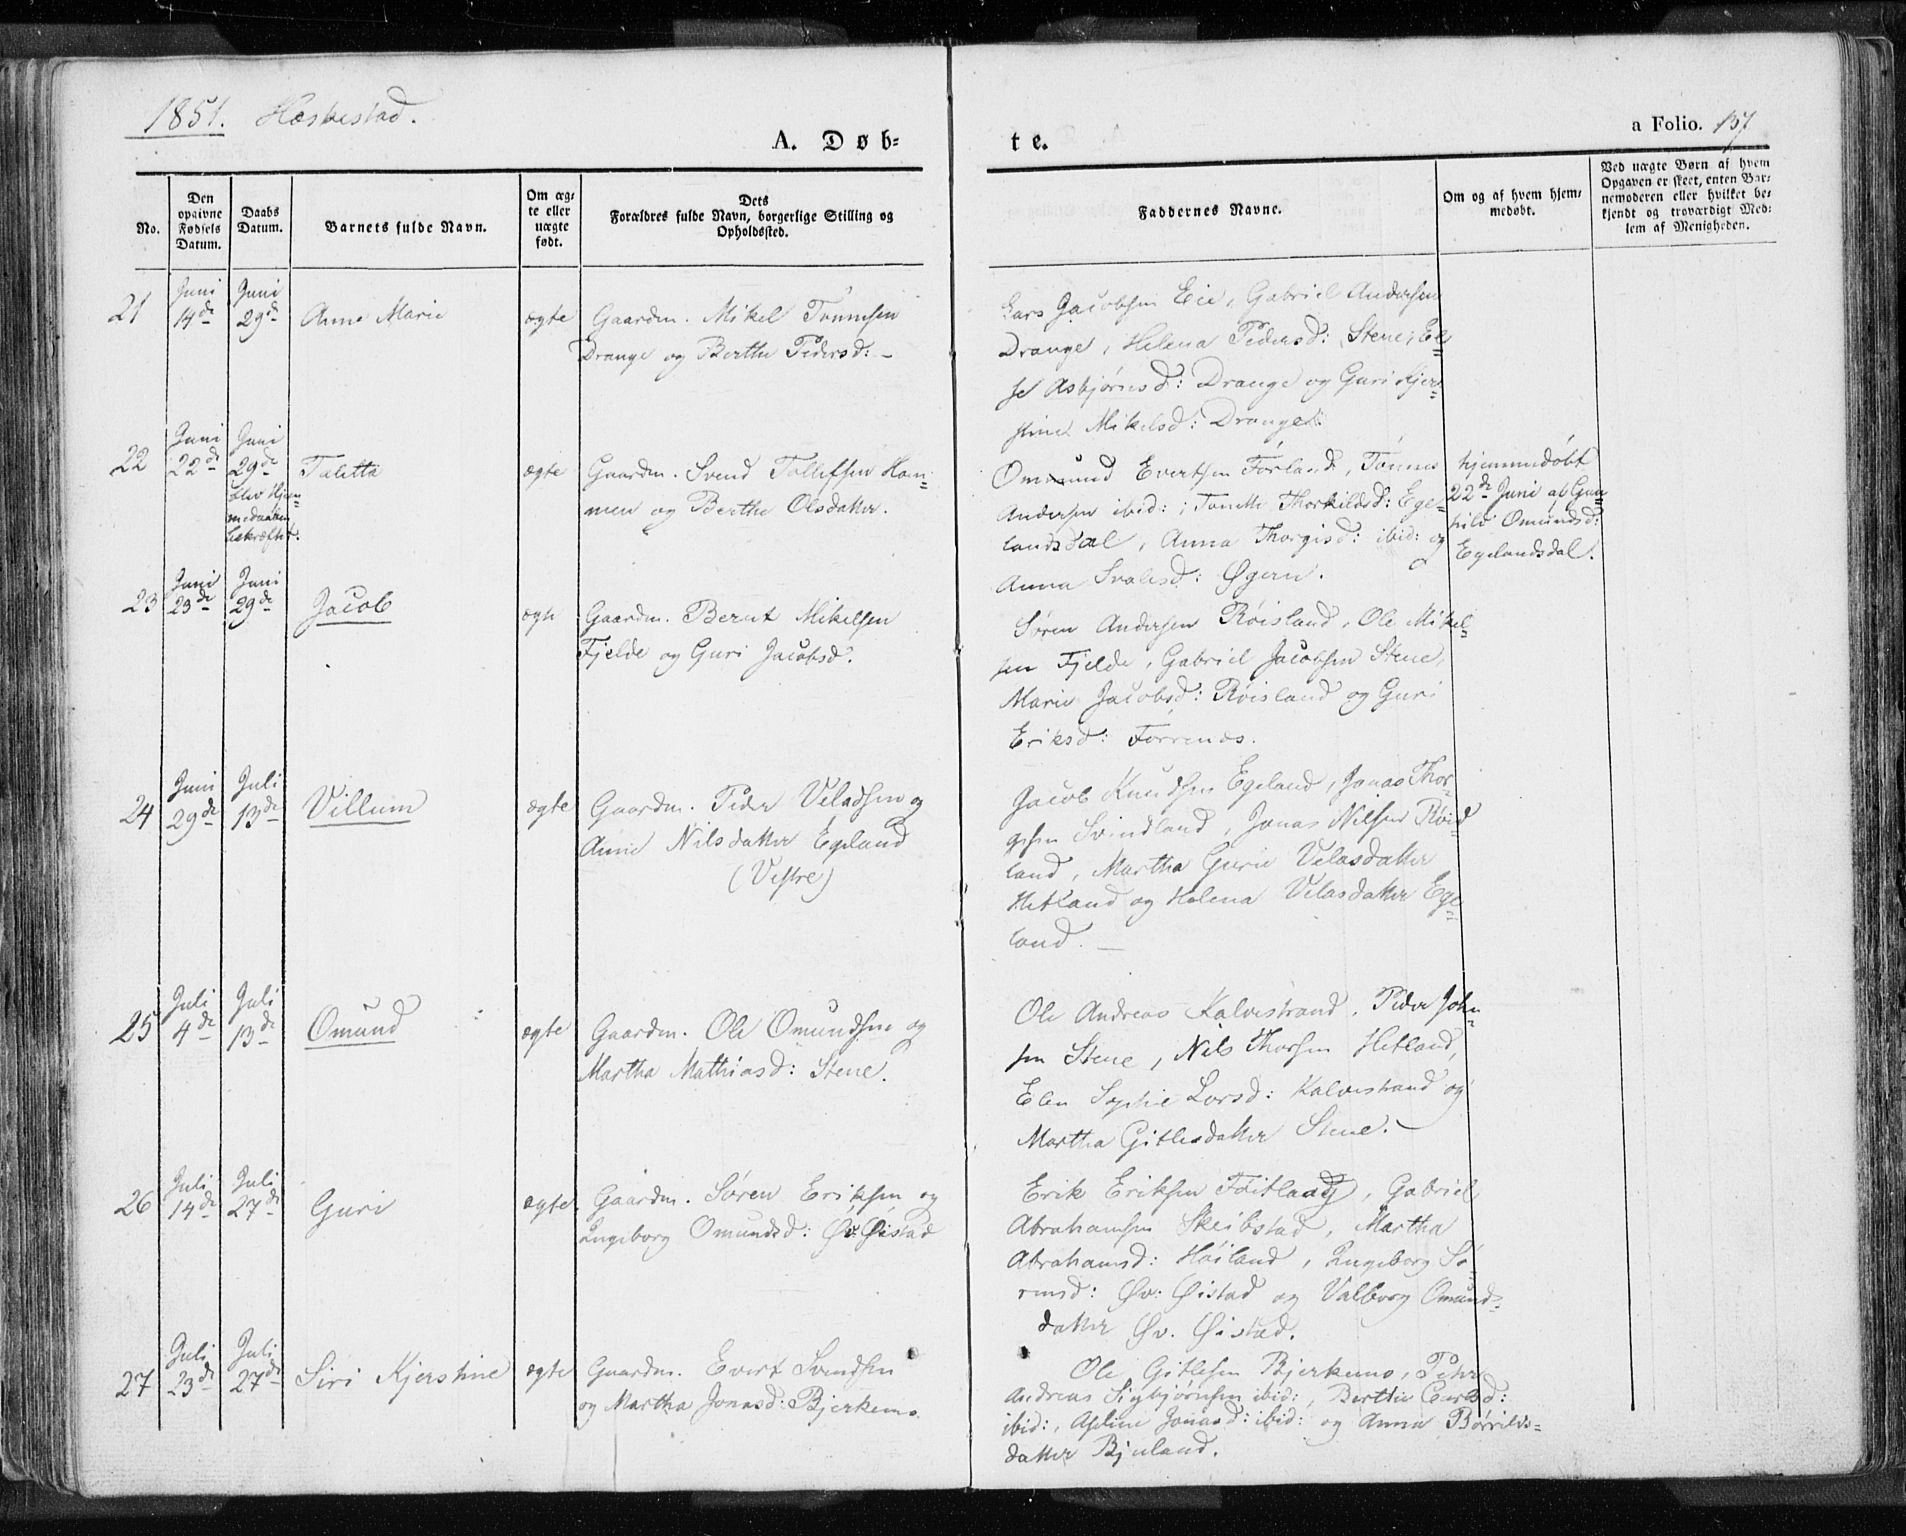 1851. Heskestad.
A. Døb-
te.
a Folio. 137
No.
Den
opgivne
Fødsels
Datum.
Daabs
Datum.
Barnets fulde Navn.
Om æg-
te eller
uægte
født.
Dets
Forældres fulde Navn, borgerlige Stilling og
Opholdssted.
Faddernes Navne.
Om og af hvem hjem-
medøbt.
Ved uægte Børn af hvem
Opgaven er skeet, enten Bar-
nemoderen eller hvilket be-
kjendt og troværdigt Med-
lem af Menigheden.
21
Juni
14de
Juni
29de
Anne Marie
ægte
Gaardm. Mikel Tønnesen
Drange og Berthe Pedersd: -
Lars Jacobsen Eie, Gabriel Andersen
Drange, Helena Pedersd: Stene, El-
se Asbjørnsd: Drange og Guri Kjer-
stine Mikelsd: Drange.
22
Juni
22de
Juni
29de
blev Hjem-
medaaben
bekræftet.
Taletta
ægte
Gaardm. Svend Tollefsen Ham-
men og Berthe Olsdatter.
Ommund Evertsen Førland, Tønnes
Andersen ibid:; Thorkildsd: Ege-
landsdal, Anna Thorgisd: ibid: og
Anna Svalesd: Øgern.
hjemmedøbt
22de Juni af Gun
hild Omundsd:
Egelandsdal.
23
Juni
23de
Juni
29de
Jacob
ægte
Gaardm. Bernt Mikelsen
Fjelde og Guri Jacobsd.
Søren Andersen Røisland, Ole Mikel-
sen Fjelde, Gabriel Jacobsen Stene,
Marie Jacobsd: Røisland og Guri
Eriksd: Førrenes.
24
Juni
29de
Juli
13de
Villum
ægte
Gaardm. Peder Veladsen og
Anne Nilsdatter Egeland
(Vestre)
Jacob Knudsen Egeland, Jonas Thor-
gsen Svindland, Jonas Nilsen Røid-
land, Martha Gurie Velasdatter
Hetland og Helena Velasdatter Ege-
land. —
25
Juli
4de
Juli
13de
Omund
ægte
Gaardm. Ole Omundsen og
Martha Mathiasd: Stene.
Ole Andreas Kalvestrand, Peder John-
sen Stene, Nils Thorsen Hetland,
Elen Sophie Larsd: Kalvestrand og
Martha Gitlesdatter Stene. —
26
Juli
14de
Juli
27de
Guri
ægte.
Gaardm. Søren Eriksen og
Ingeborg Omundsd: Øv: Øistad
Erik Eriksen, Gabriel
Abrahamsen Skeibstad, Martha
Abrahamsd: Høiland, Ingeborg Sø-
rensd: Øv: Øistad og Valborg Omund-
datter Øv. Øistad.
27
Juli
23de
Juli
27de
Siri Kjerstine
ægte
Gaardm. Evert Svendsen
og Martha Jonasd: Bjerkemo.
Ole Gitlesen Bjerkemo, Peder
Andreas Sigbjørnsen ibid:, Berthe
ibid:, Jonasd: ibid: og Anna Børrilds-
datter Bjuland.